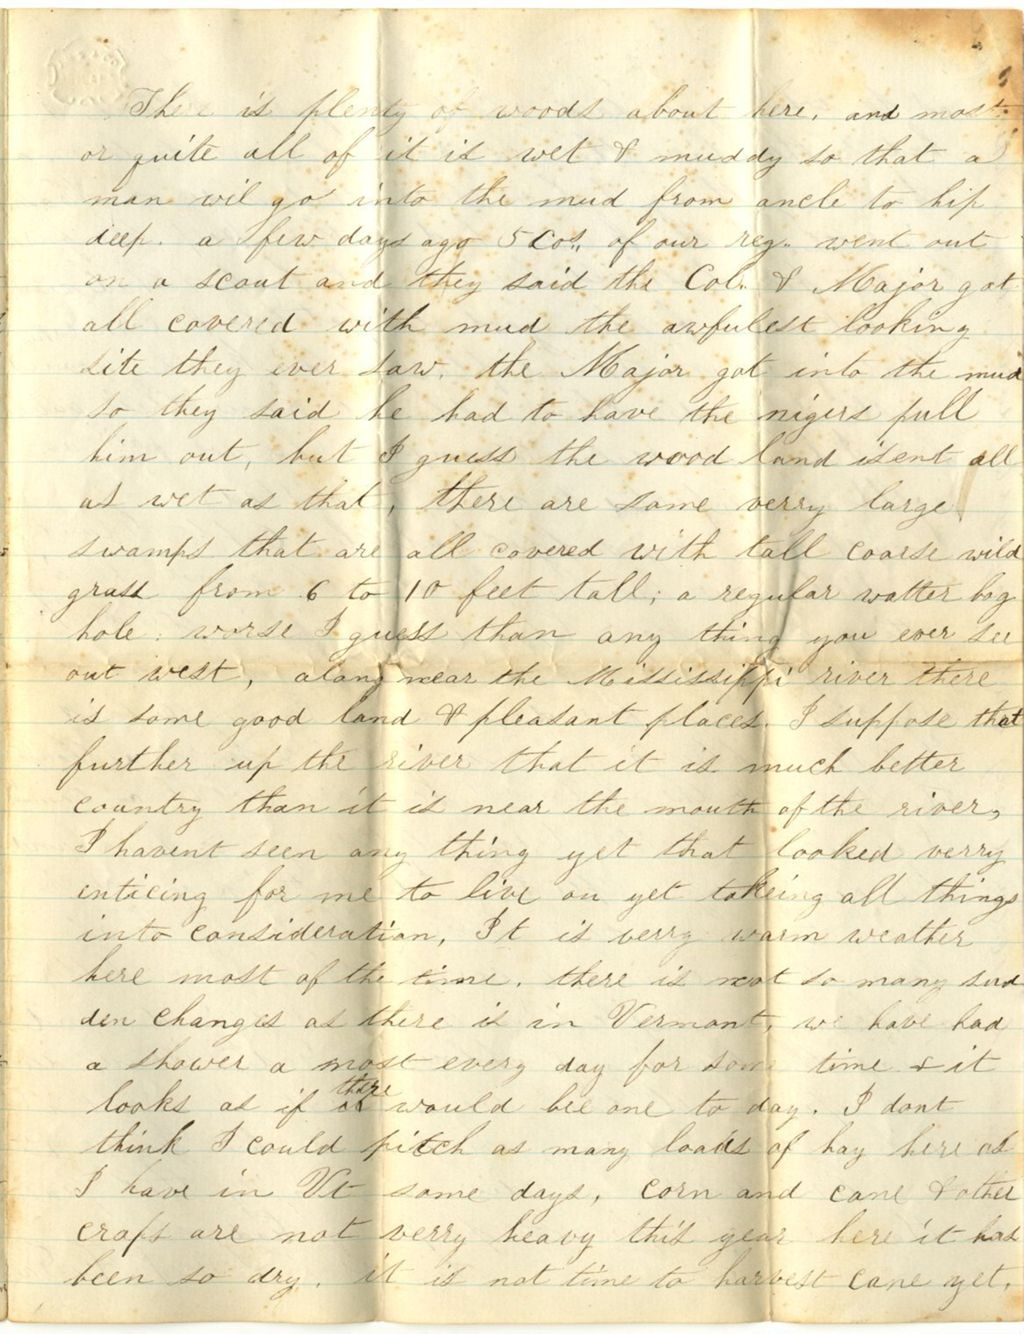 There is plenty of woods about here, and most
or quite all of it is wet & muddy so that a
man wil go into the mud from ancle to hip
deep. a few days ago 5 Cos,, of our reg,, went out
on a scout and they said the Col,, & Major got
all covered with mud the awfulest looking
site they ever saw. the Major got into the mud
so they said he had to have the nigers pull
him out, but I guess the wood land isent all
as wet as that, there are some verry large
swamps that are all covered with tall coarse wild
grass from 6 to 10 feet tall; a regular watter bog
hole. worse I guess than any thing you ever see
out west, along near the Mississippi river there
is some good land & pleasant places. I suppose that
further up the river that it is much better
country than it is near the mouth of the river,
I havent seen any thing yet that looked verry
inticing for me to live on yet takeing all things
into consideration, It is verry warm weather
here most of the time. there is not so many sud
den changes as there is in Vermont, we have had
a shower a most every day for some time & it
looks as if there would bee one to day. I dont
think I could pitch as many loads of hay here as
I have in Vt some days, corn and cane & other
crops are not verry heavy this year here it has
been so dry. it is not time to harvest cane yet.